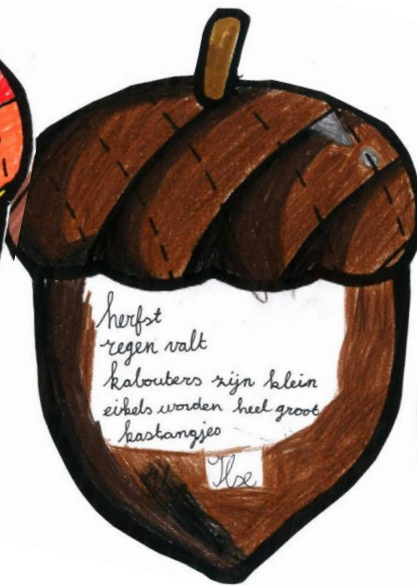 herfst
regen valt
kabouters zijn klein
eikels worden heel groot
kastangjes
Ilse